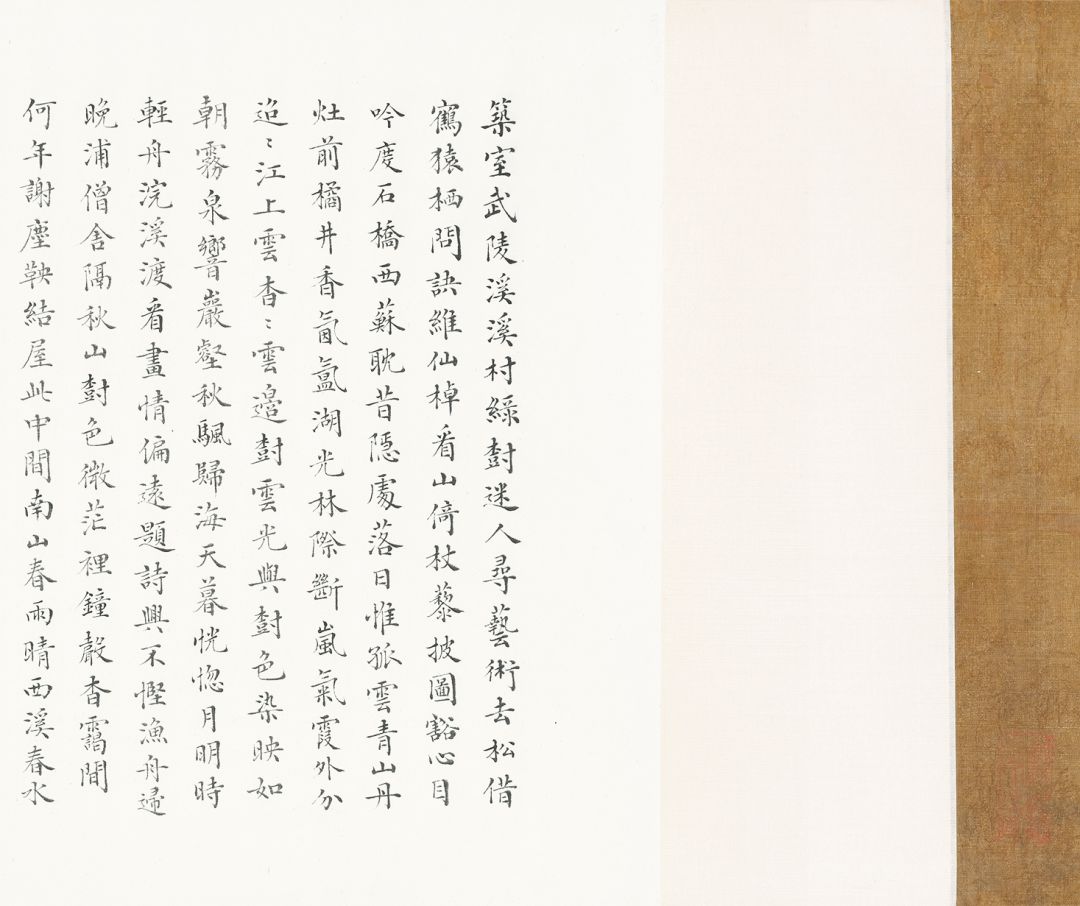 築室武陵溪溪村綠樹迷人尋藝術去松借
鶴猿栖問訣維仙棹看山倚杖藜披圖豁心目
吟度石橋西蘇耽昔隱處落日惟孤雲青山丹
灶前橘井香氤氳湖光林際斷嵐氣霞外分
迢〻江上雲杳〻雲邊樹雲光與樹色染映如
朝霧泉響巖壑秋颿歸海天暮恍惚月明時
輕舟浣溪渡看畫情偏遠題詩興不慳漁舟歸
晚浦僧舍隔秋山樹色微茫裡鐘聲杳靄間
何年謝塵鞅結屋此中間南山春雨晴西溪春水